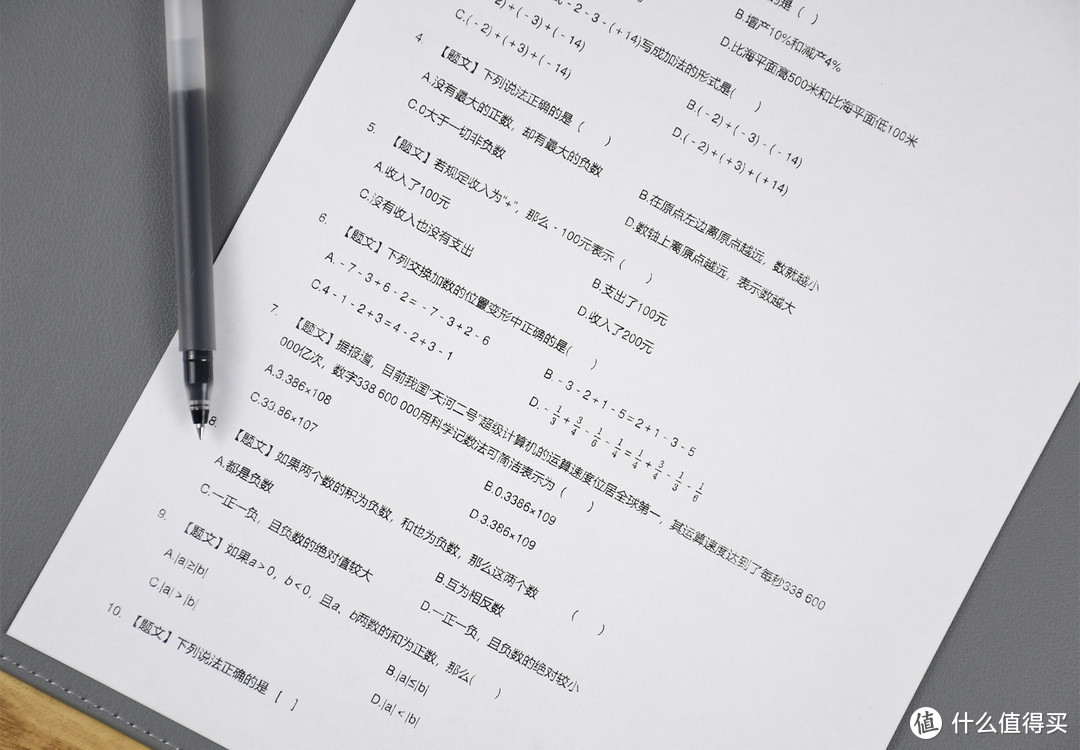 的是（ ）
B.增产10%和减产4%
D.比海平面高500米和比海平面低100米
-2-3-(+14)写成加法的形式是( )
2)+(-3)+(-14)
B.(-2)+(-3)-(-14)
C.(-2)+(+3)+(-14)
D.(-2)+(+3)+(+14)
4.
【题文】下列说法正确的是（ ）
A.没有最大的正数，却有最大的负数
B.在原点左边离原点越远，数就越小
C.0大于一切非负数
D.数轴上离原点越远，表示数越大
5.
【题文】若规定收入为“+”，那么-100元表示（ ）
A.收入了100元
B.支出了100元
C.没有收入也没有支出
D.收入了200元
6.
【题文】下列交换加数的位置变形中正确的是( )
A.-7-3+6-2=-7-3+2-6
B.-3-2+1-5=2+1-3-5
C.4-1-2+3=4-2+3-1
D.-1/3+3/4-1/6-1/4=1/4+3/4-1/3-1/6
7.
【题文】据报道，目前我国“天河二号”超级计算机的运算速度位居全球第一，其运算速度达到了每秒338 600
000亿次，数字338 600 000用科学记数法可简洁表示为（ ）
A.3.386×108
B.0.3386×109
C.33.86×107
D.3.386×109
8.
【题文】如果两个数的积为负数，和也为负数，那么这两个数 （ ）
A.都是负数
B.互为相反数
C.一正一负，且负数的绝对值较大
D.一正一负，且负数的绝对较小
9.
【题文】如果a>0，b<0，且a、b两数的和为正数，那么( )
A.|a|≥|b|
B.|a|≤|b|
C.|a|>|b|
D.|a|<|b|
10.
【题文】下列说法正确的是［ ］
值 什么值得买